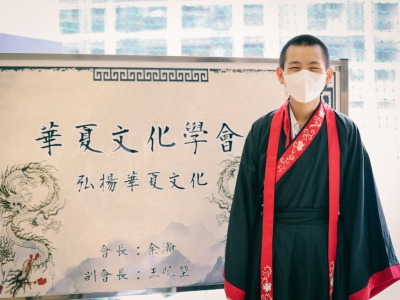 華夏文化學會
弘揚華夏文化
會長：余瀚
副會長：王曉堃